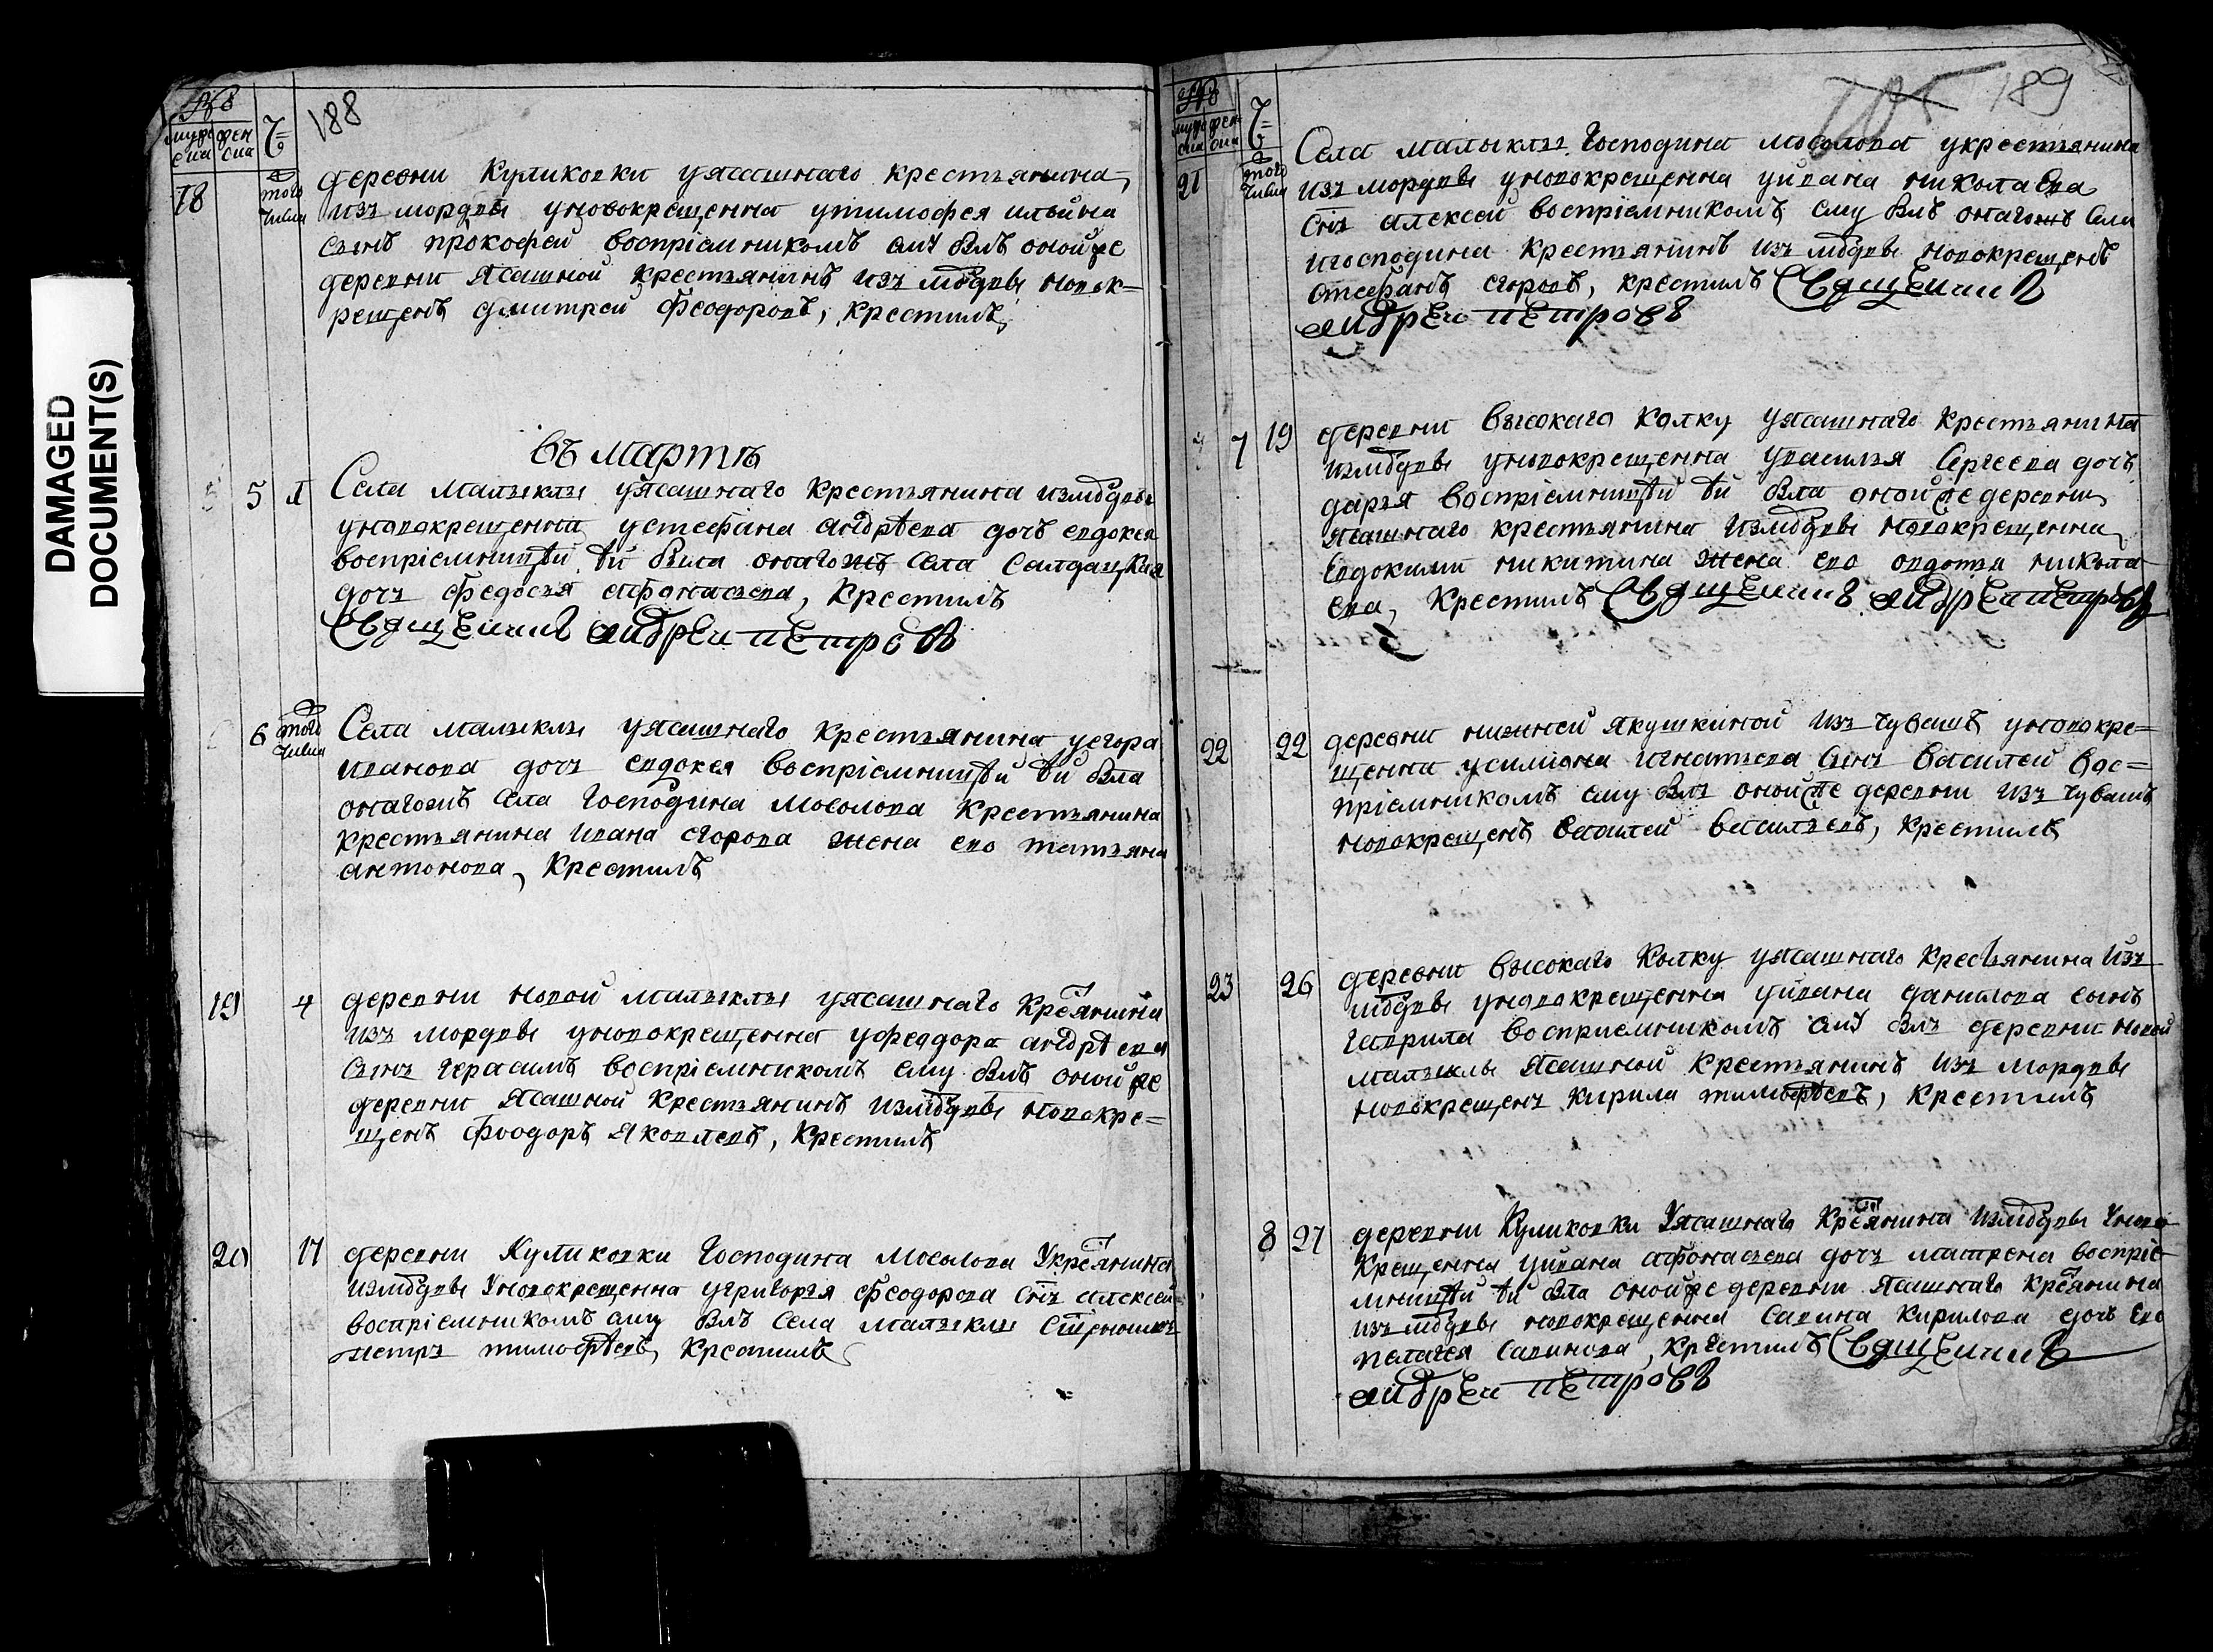 DAMAGED
DOCUMENT(S)
188
муже женс
ска ска
Ч=
18
того числа
деревни Куликовки у ясашнаго крестьянина
изъ мордвы у новокрещенна у тимофея ильина
сынъ прокофей воспрiемникомъ ему былъ оной же
деревни ясашной крестьянинъ изъ мордвы новок-
рещенъ дмитрей Феодоровъ, крестилъ
въ Мартѣ
5
Села малыклы у ясашнаго крестьянина из мордвы
у новокрещенна у стефана андрѣева дочь евдокея
воспрiемницей ѣй была онагожъ села салдацкая
дочь Федосья афонасьева, крестилъ
Священникъ андреи петровъ
6 того числа
Села малыклы у ясашнаго крестьянина у егора
иванова дочь евдокея воспрiемницей ѣй была
онагожъ села господина мосолова крестьянина
крестьянина ивана егорова жена ево татьяна
антонова, крестилъ
19 4
деревни новой малыклы у ясашнаго крестянина
изъ мордвы у новокрещенна у феддора андрѣева
сынъ герасимъ воспрiемникомъ ему былъ оной же
деревни ясашной крестьянинъ из мордвы новокре=
щенъ Феодоръ яковлевъ, крестилъ
20 17
деревни Куликовки господина мосолова у крестянина
из мордвы у новокрещенна у григорья феодорова снъ алексей
воспрiемникомъ ему былъ села малыклы
петръ тимофѣевъ, крестилъ
189
Ч=
21 того числа
Села малыклы господина мосолова у крестьянина
изъ мордвы у новокрещенна у ивана николаева
снъ алексей воспрiемникомъ ему былъ онагожъ села
и господина крестьянинъ изъ мордвы новокрещенъ
стефанъ егоровъ, крестилъ Священникъ
андреи петровъ
7 19
деревни высокаго колку у ясашнаго крестьянина
из мордвы у новокрещенна у василья Сергеева дочь
дарья воспрiемницей ѣй была оной же деревни
ясашнаго крестьянина из мордвы новокрещенна
Евдокима никитина жена ево овдотья никола
ева, крестилъ Священникъ андреи петровъ
22 22
деревни нижней якушкиной изъ чувашъ у новокре=
щенна у симиона игнатьева сынъ василей вос=
прiемникомъ ему былъ оной же деревни изъ чувашъ
новокрещенъ василей васильевъ, крестилъ
23 26
деревни высокаго колку у ясашнаго крестьянина изъ
мордвы у новокрещенна у ивана данилова сынъ
гаврила восприемникомъ ему былъ деревни новой
малыклы ясашной крестьянинъ изъ мордвы
новокрещенъ кирила тимофѣевъ, крестилъ
8 27
деревни Куликовки у ясашнаго крестянина из мордвы у ново
крещенна у ивана афонасьева дочь матрена воспрiе-
мницей ѣй была оной же деревни ясашнаго крестянина
изъ мордвы новокрещенна савина кирилова дочь ево
пелагея савинова, крестилъ Священникъ
андреи петровъ